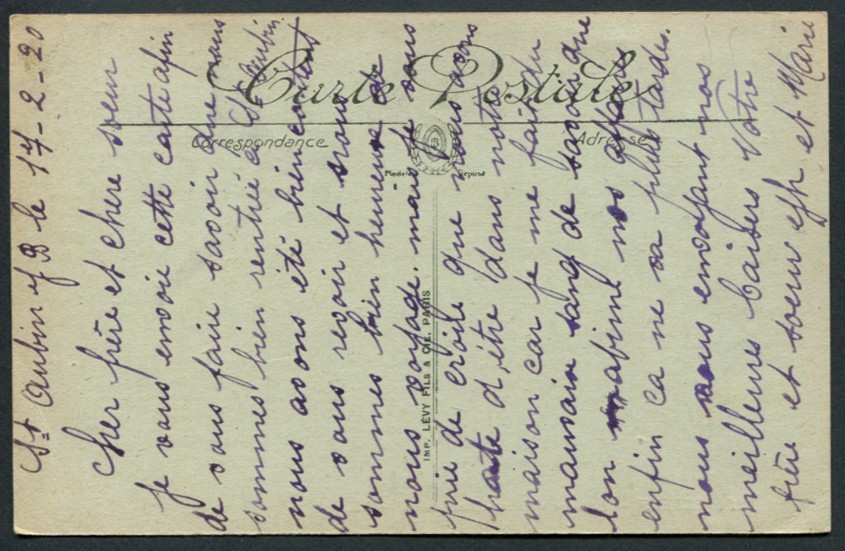 Carte Postale
Correspondance
Adresse
Modèle Déposé
IMP. LÉVY FILS & CIE. PARIS
St Aubin le 17-2-20
Cher frère et chere soeur
je vous envoie cette carte afin
de vous faire savoir que nous
sommes bien rentré a St Aubin
nous avons été bien content
de vous revoir et nous
sommes bien heureux de
nous voyage. mais je vous
jure de croire que nous avons
hate d'être dans notre
maison car je me fait du
mauvais sang de savoir que
lon abime nos affaires
enfin ca ne va plus tarder.
nous vous envoyant nos
meilleures baisers Votre
frère et soeur et Marie